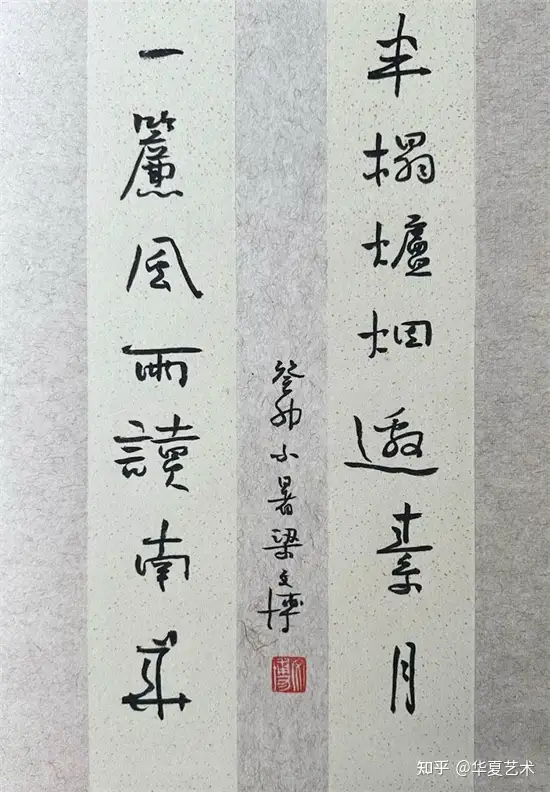 半榻爐烟邀素月
一簾風雨讀南華
癸卯小暑梁文博
文博
知乎 @华夏艺术